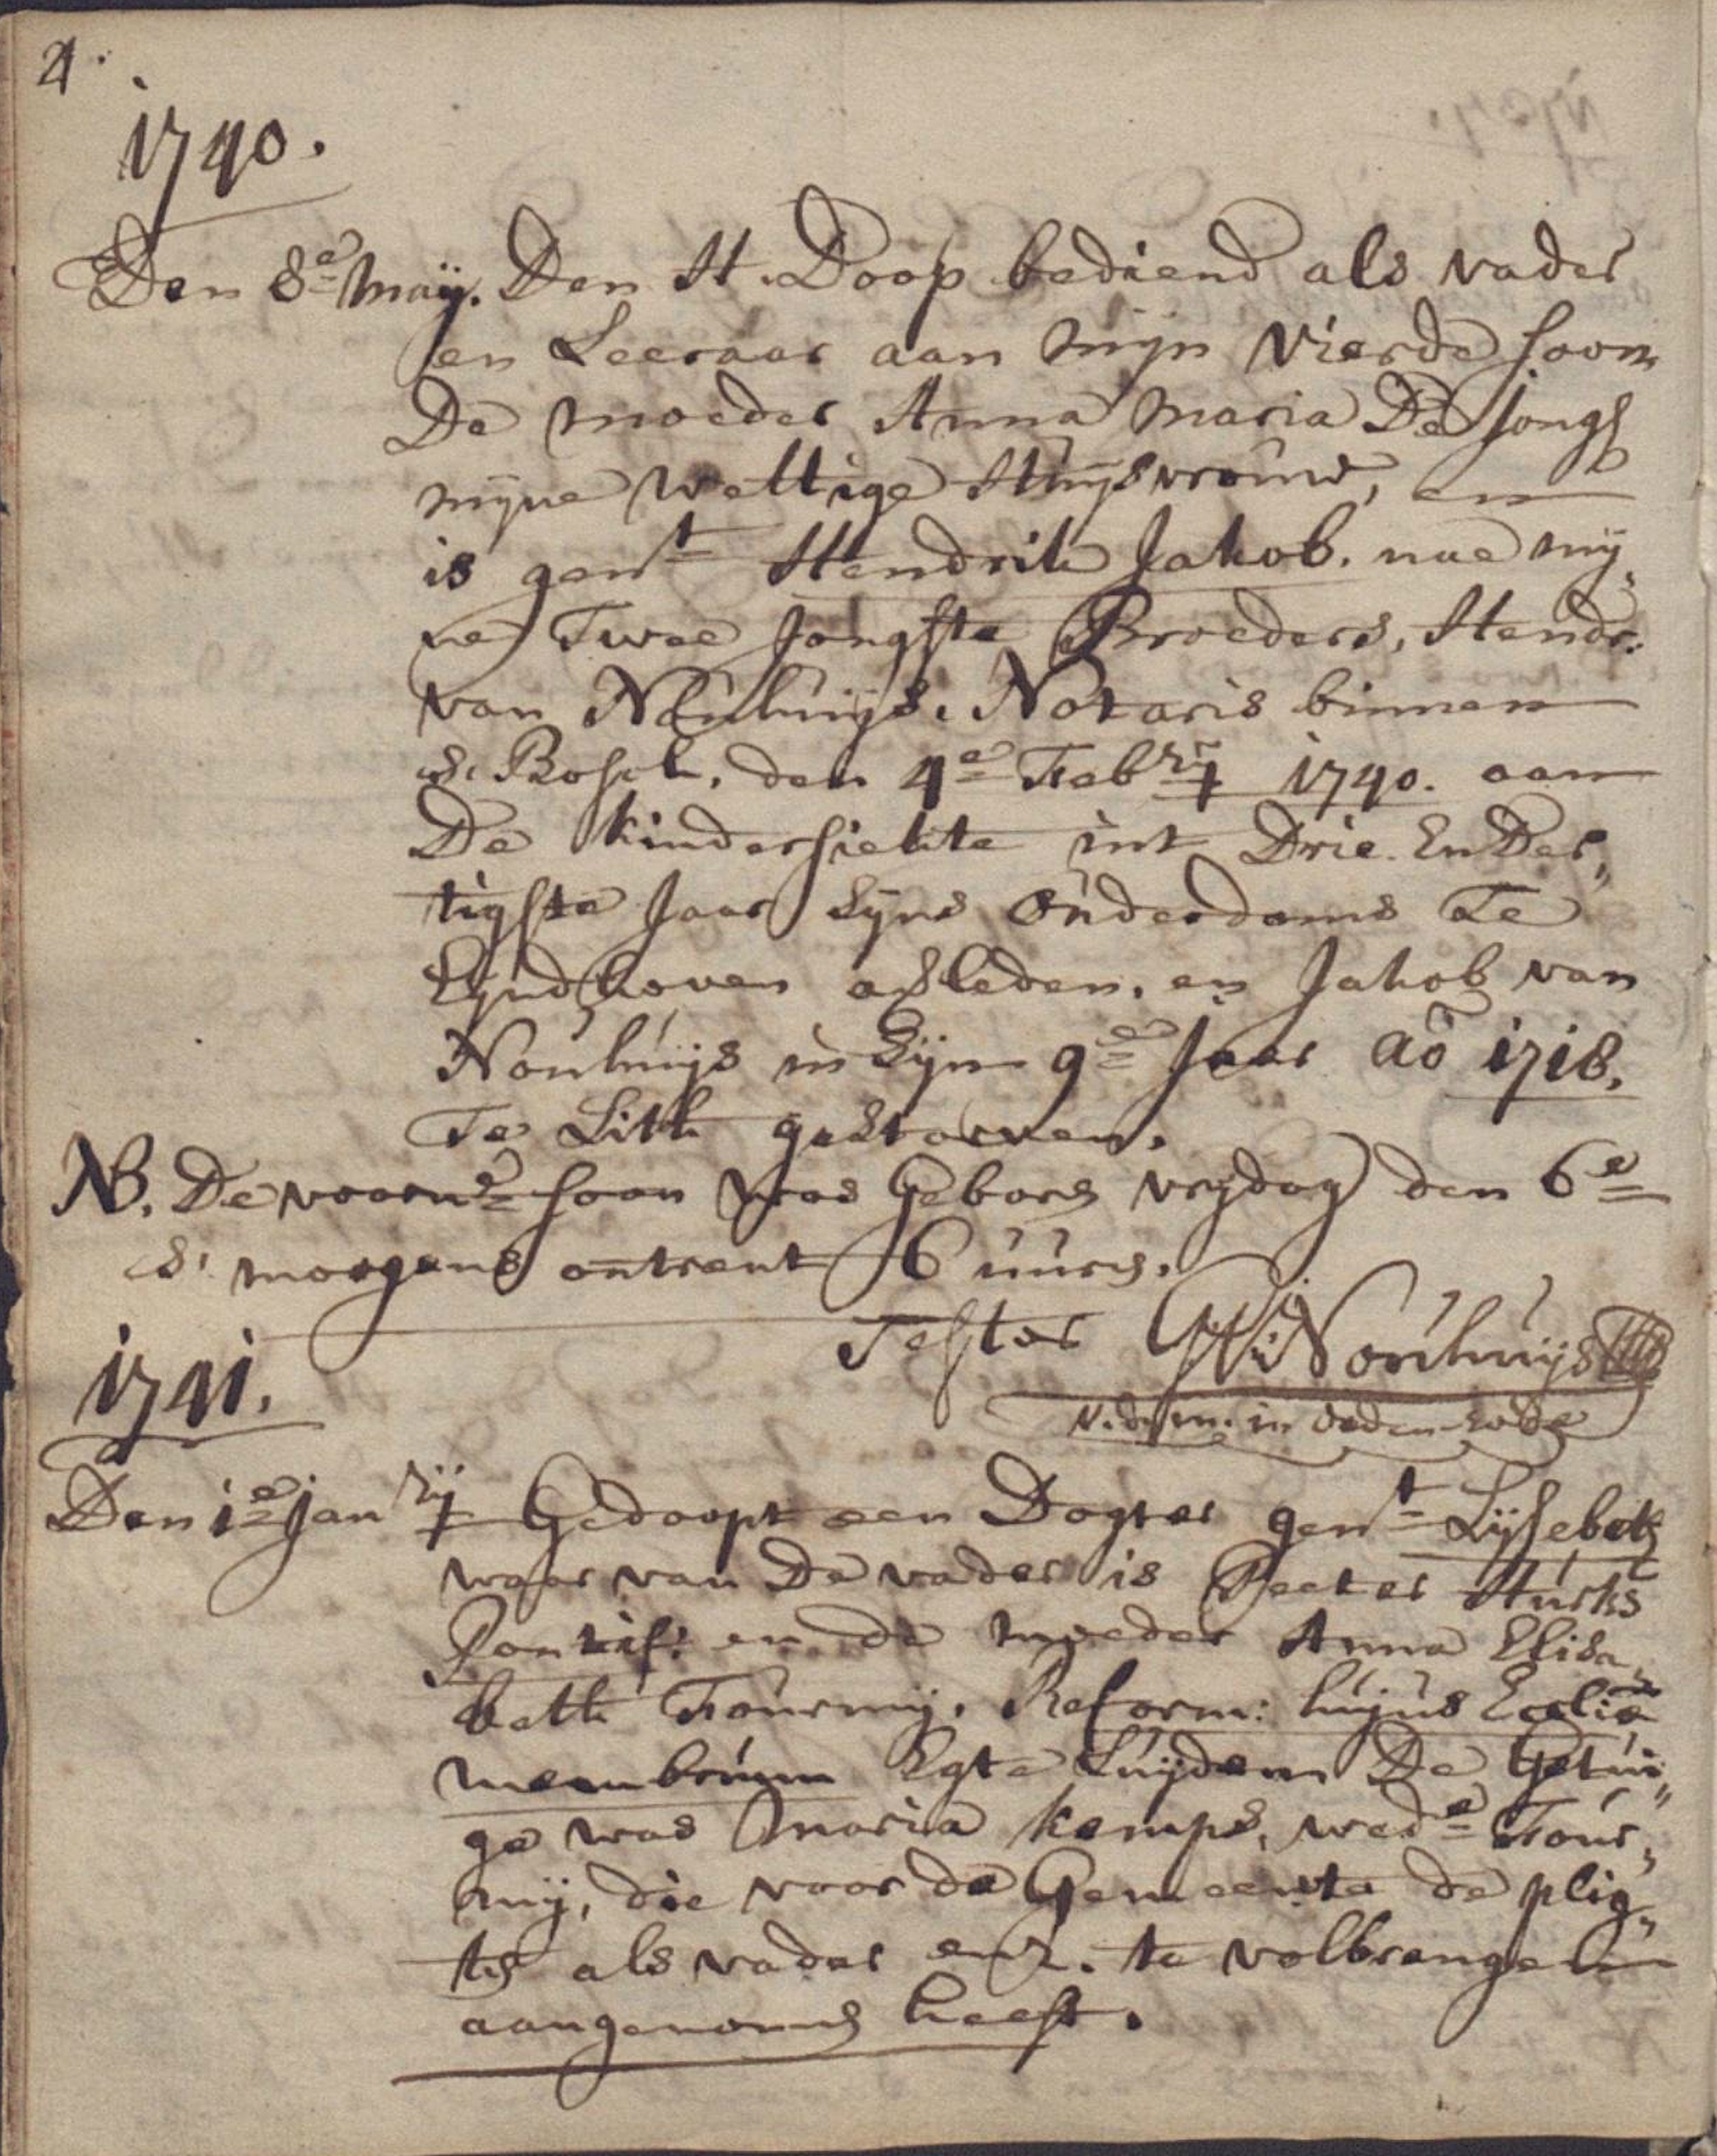 4.
1740.
Den 8e Maÿ. Den H. Doop bediend als vader
en Leeraar aan mijn vierde soon
De moeder Anna Maria De Jongh
mijne wettige Huijsvrouw, en
is gent Hendrik Jakob. nae mij„
ne Twee Jongste Broeders, Hendr:
van Nouhuijs. Notaris binnen
s. Bosch, den 4e Febrij 1740. aan
De kindersiekte int Drie En Der„
tigste Jaar Sijns ouderdoms Te
Eijndhoven afleden, en Jakob van
Nouhuijs in Sijn 9e Jaar aō 1718.
Te Lith gestorven.
NB. De voorne soon was Geboren vrijdag den 6e
s' morgens ontrent 6 uuren.
Testor W Nouhuijs
v. d. m. in
1741.
Den 1e Janrij Gedoopt een Dogter gent Lijsebeth
waar van De vader is Peeter Hurks
Pontif: en de moeder Anna Elisa„
beth Fourmij. Reform: hujus Eccliæ
membrum Egte Luijden De Getui„
ge was Maria kemps, wede Four„
mij, die voor de Gemeente de plig„
ten als vader enz. te volbrengen
aangenomen heeft.